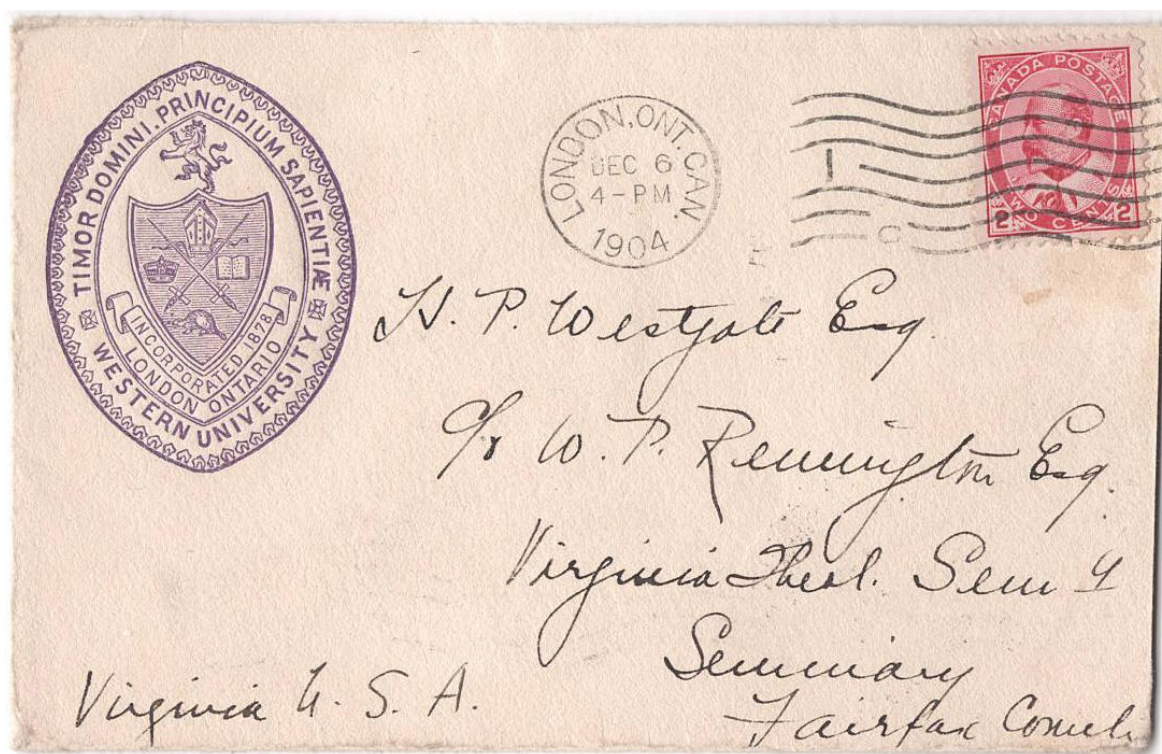 TIMOR DOMINI. PRINCIPIUM SAPIENTIÆ
WESTERN UNIVERSITY
INCORPORATED 1878
LONDON ONTARIO
LONDON, ONT. CAN.
DEC 6
4-PM
1904
CANADA POSTAGE
2 TWO CENTS 2
H. P. Westgate Esq.
c/o W. P. Remington Esq.
Virginia Theol. Sem y
Seminary
Fairfax
Virginia U. S. A.